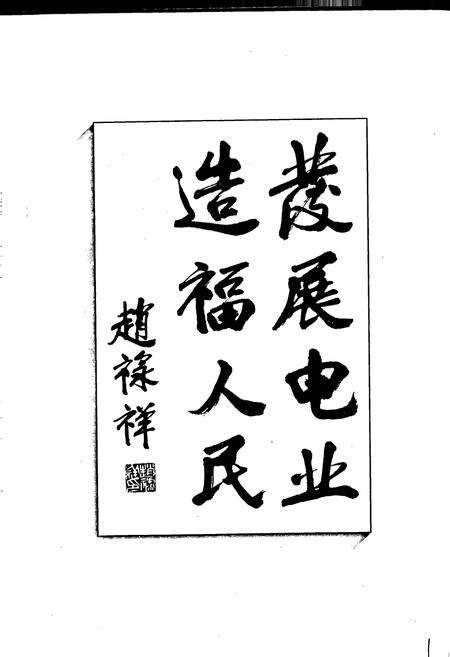 發展电业
造福人民
趙祿祥